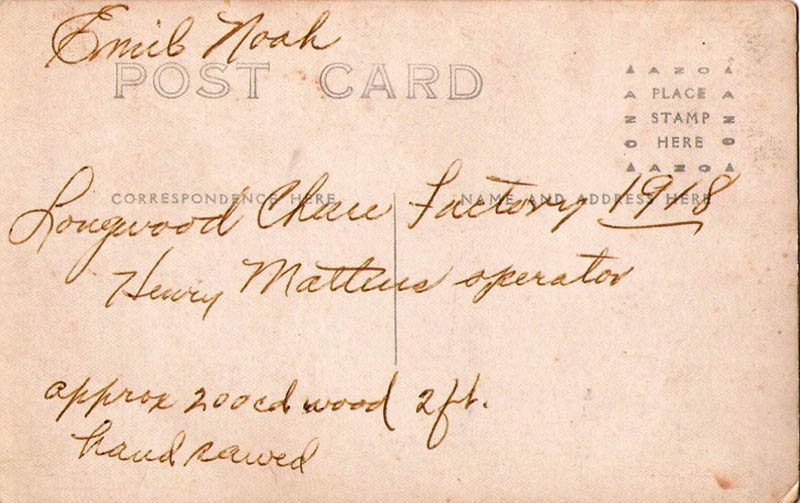 Emil Noah
POST CARD
▲ A Z O ▲
A PLACE A
N STAMP N
O HERE O
▲ A Z O ▲
CORRESPONDENCE HERE
NAME AND ADDRESS HERE
Longwood Chese Factory 1918
Henry operator
approx 200cd wood 2ft.
hand sawed